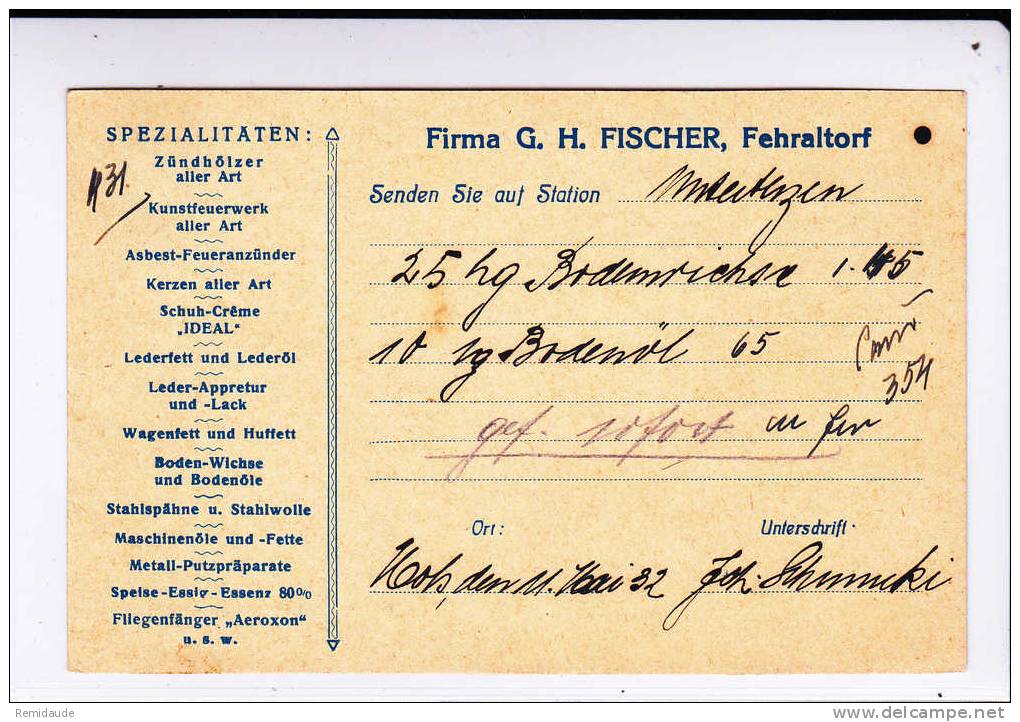 SPEZIALITÄTEN:
Zündhölzer
aller Art
Kunstfeuerwerk
aller Art
Asbest-Feueranzünder
Kerzen aller Art
Schuh-Crême
„IDEAL“
Lederfett und Lederöl
Leder-Appretur
und -Lack
Wagenfett und Huffett
Boden-Wichse
und Bodenöle
Stahlspähne u. Stahlwolle
Maschinenöle und -Fette
Metall-Putzpräparate
Speise-Essig-Essenz 80%
Fliegenfänger „Aeroxon“
u. s. w.
431.
Firma G. H. FISCHER, Fehraltorf
Senden Sie auf Station
25 kg Bodenwichse 1.45
10 kg Bodenöl 65
354
gef. sofort
Ort: Unterschrift:
den 11. Mai 32
Remidaude
www.delcampe.net